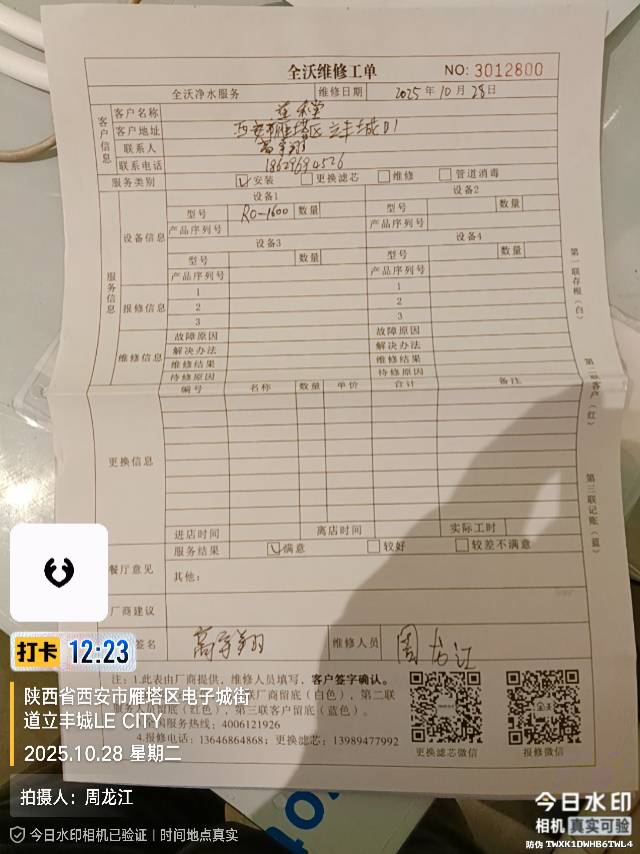 全沃维修工单
NO: 3012800
全沃净水服务 维修日期 2025年10月28日
客户信息
客户名称
客户地址 西安市雁塔区立丰城D1
联系人 高宇翔
联系电话 18629694526
服务类别 安装 更换滤芯 维修 管道消毒
服务信息
设备信息
设备1 设备2
型号 RO-1600 数量 型号 数量
产品序列号 产品序列号
设备3 设备4
型号 数量 型号 数量
产品序列号 产品序列号
报修信息
1 1
2 2
3 3
维修信息
故障原因 故障原因
解决办法 解决办法
维修结果 维修结果
待修原因 待修原因
编号 名称 数量 单价 合计 备注
更换信息
进店时间 离店时间 实际工时
服务结果 满意 较好 较差不满意
餐厅意见 其他:
厂商建议
签名 高宇翔 维修人员 周龙江
注:1.此表由厂商提供,维修人员填写,客户签字确认。
厂商留底(白色),第二联
服务人员留底(红色),第三联客户留底(蓝色)。
服务热线:4006121926
4.报修电话:13646864868;更换滤芯:13989477992
更换滤芯微信 报修微信
第一联存根(白)
第二联客户(红)
第三联记账(蓝)
打卡 12:23
陕西省西安市雁塔区电子城街
道立丰城LE CITY
2025.10.28 星期二
拍摄人:周龙江
今日水印相机已验证 | 时间地点真实
今日水印
相机 真实可验
防伪 TWXK1DWHB6TWL4